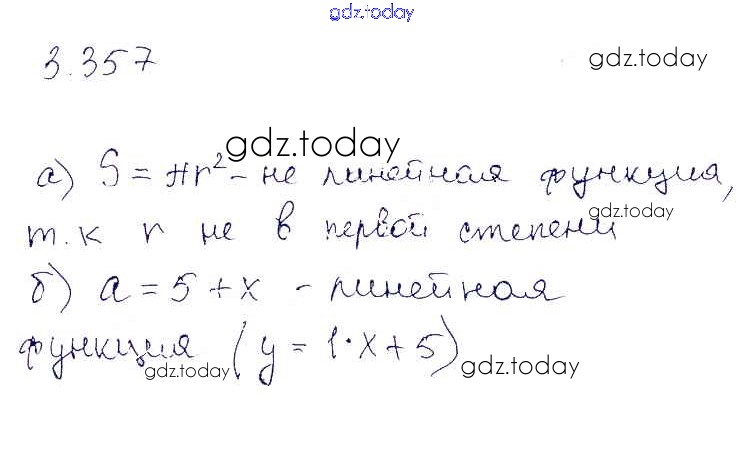 gdz.today
3.357
gdz.today
gdz.today
а) S = πr² - не линейная функция,
gdz.today
т.к r не в первой степени
б) a = 5 + x - линейная
функция (y = 1·x + 5)
gdz.today
gdz.today